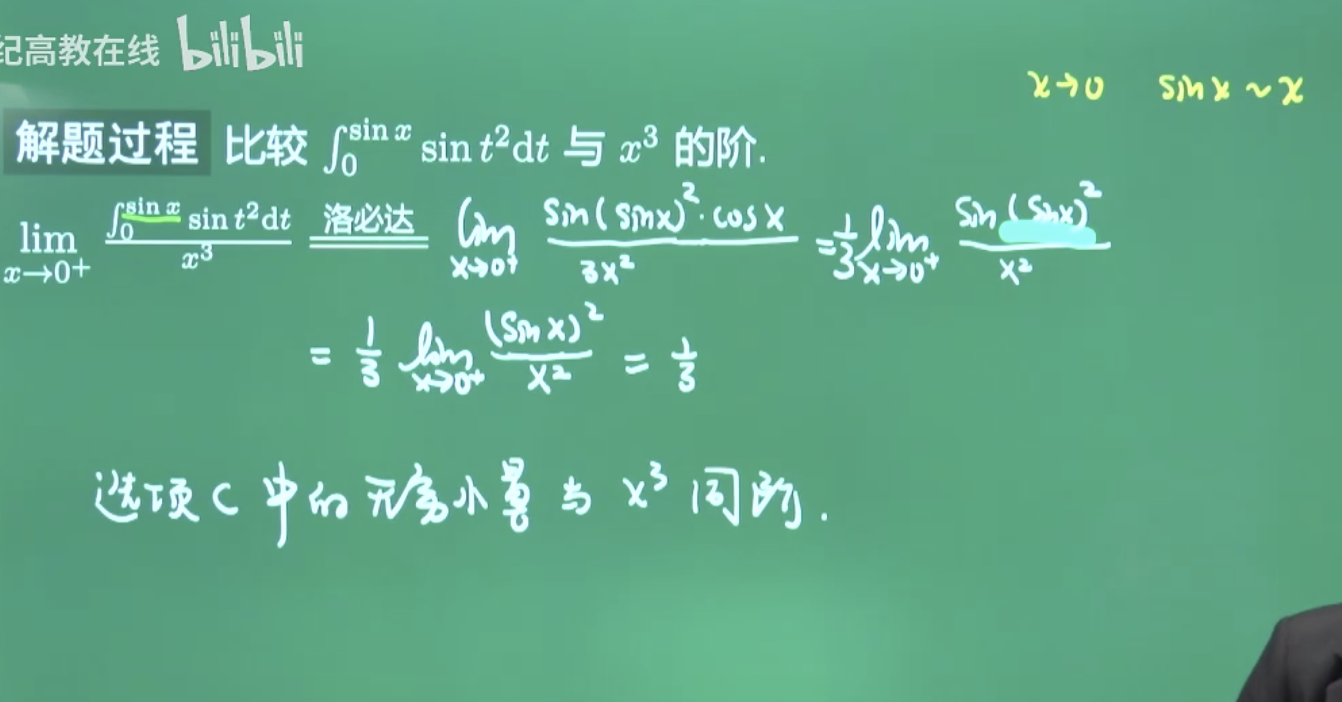 纪高教在线 bilibili
x→0 sin x ~ x
解题过程 比较 ∫₀^{sin x} sin t² dt 与 x³ 的阶.
lim_{x→0⁺} (∫₀^{sin x} sin t² dt)/x³ 洛必达 lim_{x→0⁺} (sin(sin x)²·cos x)/(3x²) = 1/3 lim_{x→0⁺} (sin(sin x)²)/x²
= 1/3 lim_{x→0⁺} (sin x)²/x² = 1/3
选项C中的无穷小量与 x³ 同阶.